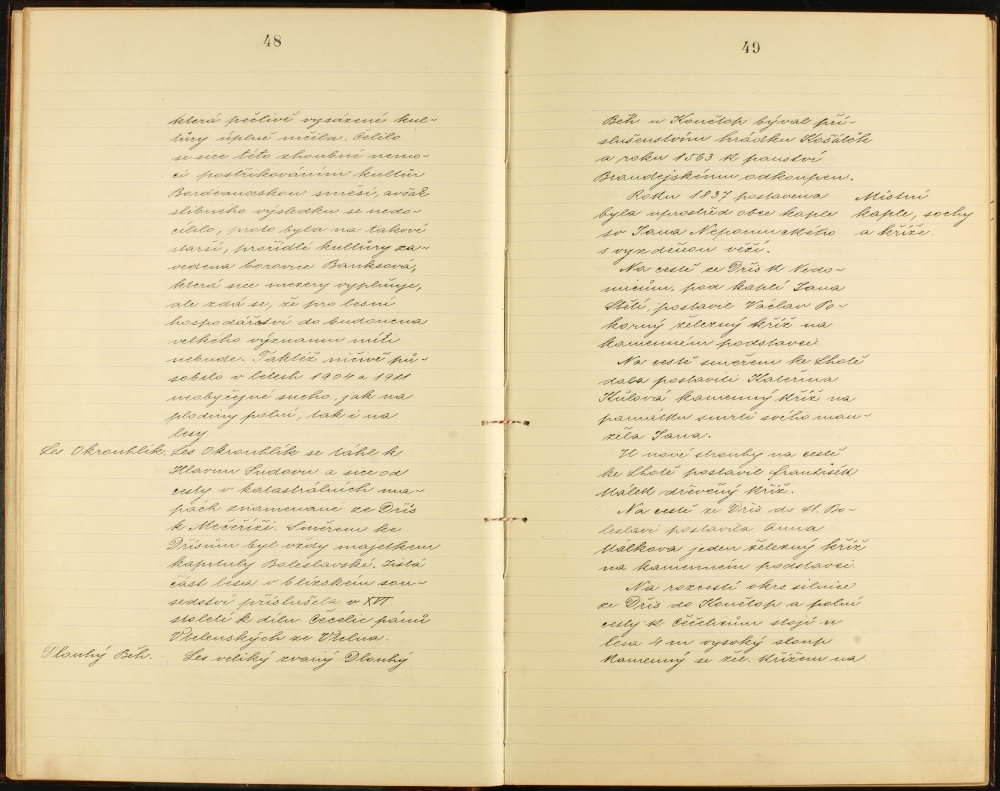 48
která pečlivě vysázené kul-
túry úplně ničila. Čelilo
se sice této zhoubné nemo-
ci postřikováním kultůr
Bordeauxskou směsí, avšak
slibného výsledku se nedo-
cílilo, proto byla na takové
starší, prořídlé kultůry za-
vedena borovice Banksová,
která sice mezery vyplňuje,
ale zdá se, že pro lesní
hospodářství do budoucna
velkého významu míti
nebude. Taktéž ničivě pů-
sobilo v letech 1904 a 1911
neobyčejné sucho, jak na
plodiny polní, tak i na
lesy
Les Okrouhlík. Les Okrouhlík se táhl k
Hlavnu Sudovu a sice od
cesty v katastrálních ma-
pách znamenané ze Dřís
k Mečeříži. Směrem ke
Dřísům byl vždy majetkem
kapituly Boleslavské. Jistá
část lesa v blízském sou-
sedství příslušela v XVI
století k dílu Čečelic pánů
Vtelenských ze Vtelna.
Dlouhý Běh. Les veliký zvaný Dlouhý
49
Běh u Konětop býval pří-
slušenstvím hrádku Košátek
a roku 1563 k panství
Brandejskému odkoupen.
Roku 1837 postavena Místní
byla uprostřed obce kaple kaple, sochy
sv Jana Nepomuckého a kříže.
s vyzděnou věží.
Na cestě ze Dřís k Nedo-
micům, pod kaplí Jana
Stětí, postavil Václav Po-
korný železný kříž na
kamenném podstavci
Na cestě směrem ke Lhotě
dala postaviti Kateřina
Kůlová kamenný kříž na
památku smrti svého man-
žela Jana.
U nové strouhy na cestě
ke Lhotě postavil František
Málek dřevěný kříž.
Na cestě ze Dřís do St. Bo-
leslavi postavila Anna
Málkova jeden železný kříž
na kamenném podstavci
Na rozcestí okrs. silnice
ze Dřís do Konětop a polní
cesty k Čečelicům stojí u
lesa 4 m vysoký sloup
kamenný se žel. křížem na